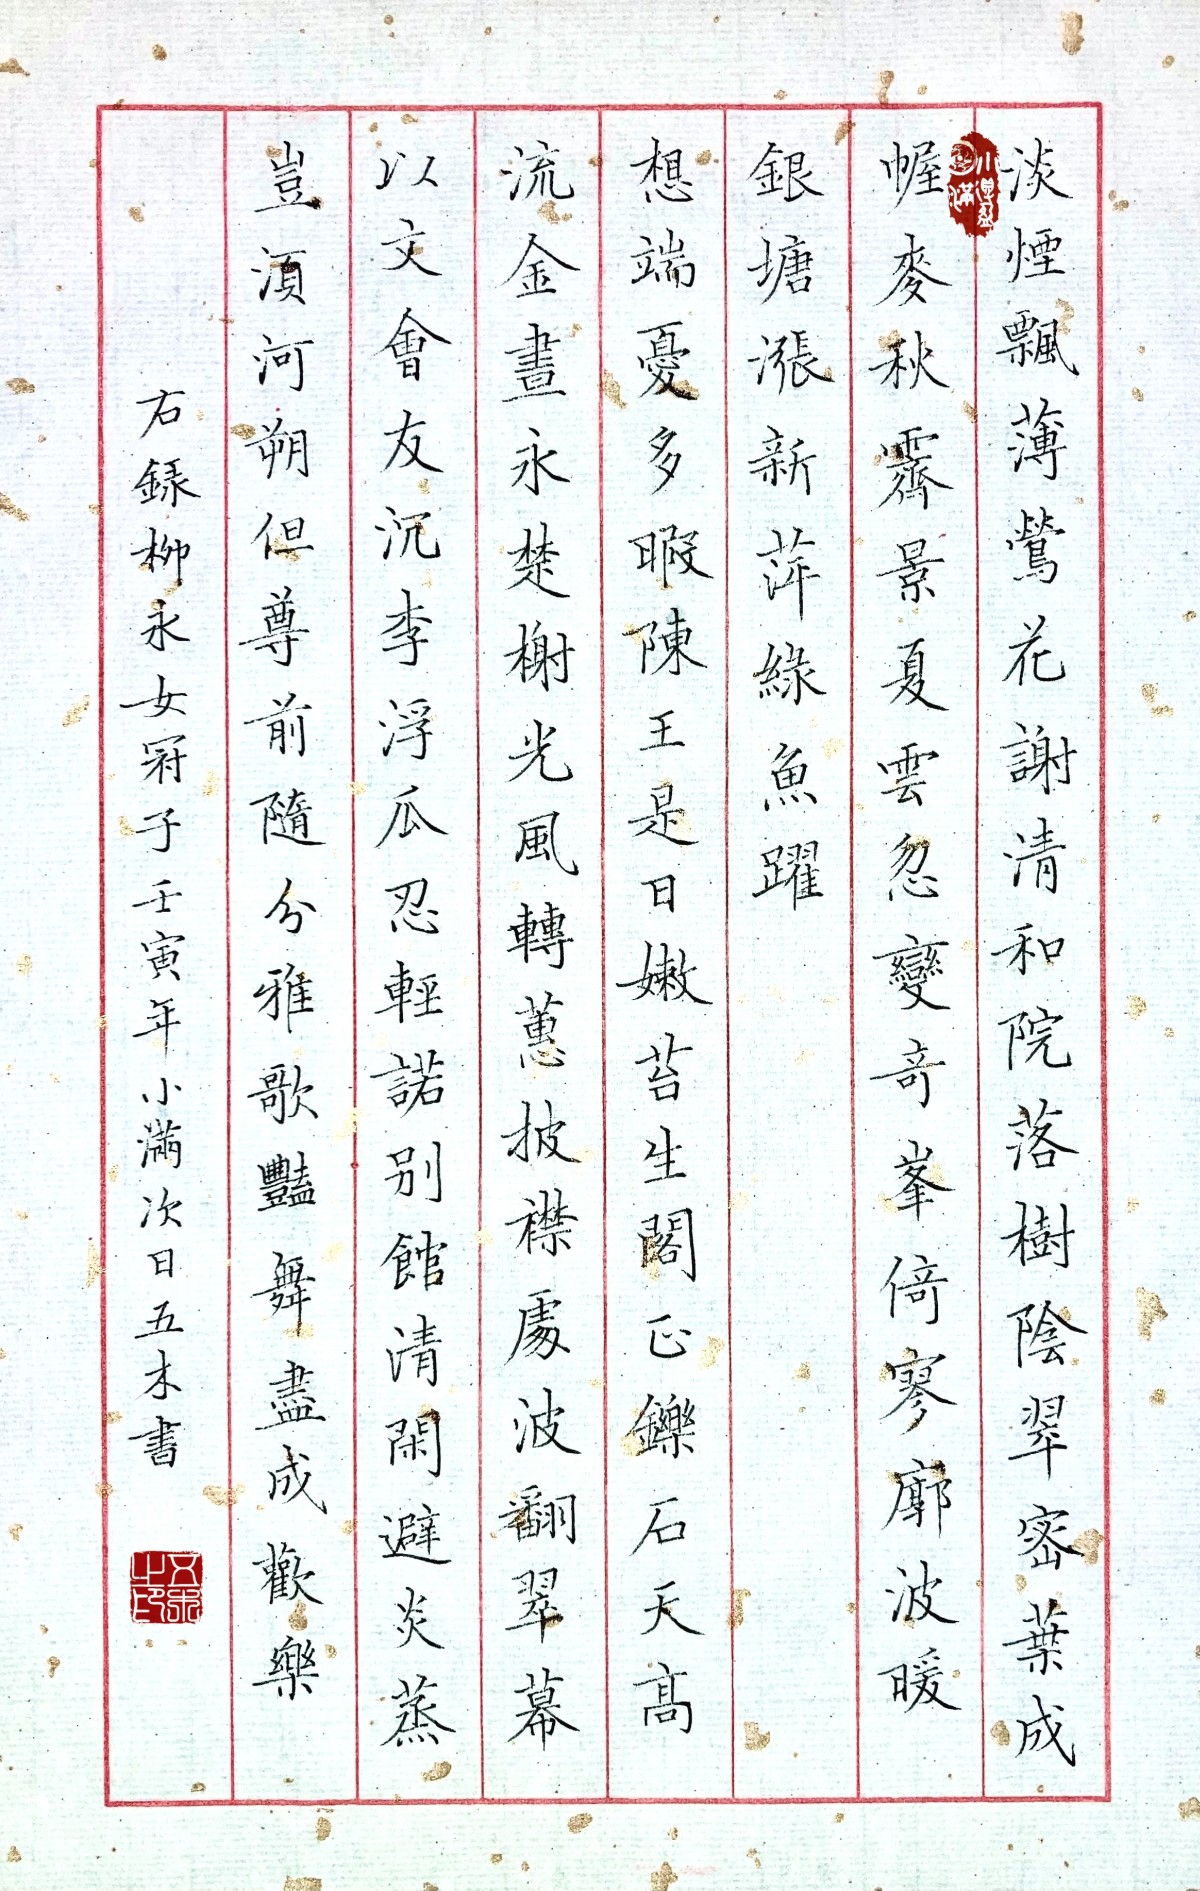 淡煙飄薄鶯花謝清和院落樹陰翠密葉成
幄麥秋霽景夏雲忽變奇峯倚寥廓波暖
銀塘漲新萍綠魚躍
想端憂多暇陳王是日嫩苔生閣正鑠石天高
流金晝永楚榭光風轉蕙披襟處波翻翠幕
以文會友沉李浮瓜忍輕諾別館清閑避炎蒸
豈須河朔但尊前隨分雅歌豔舞盡成歡樂
右錄柳永女冠子壬寅年小滿次日五木書
五木之印